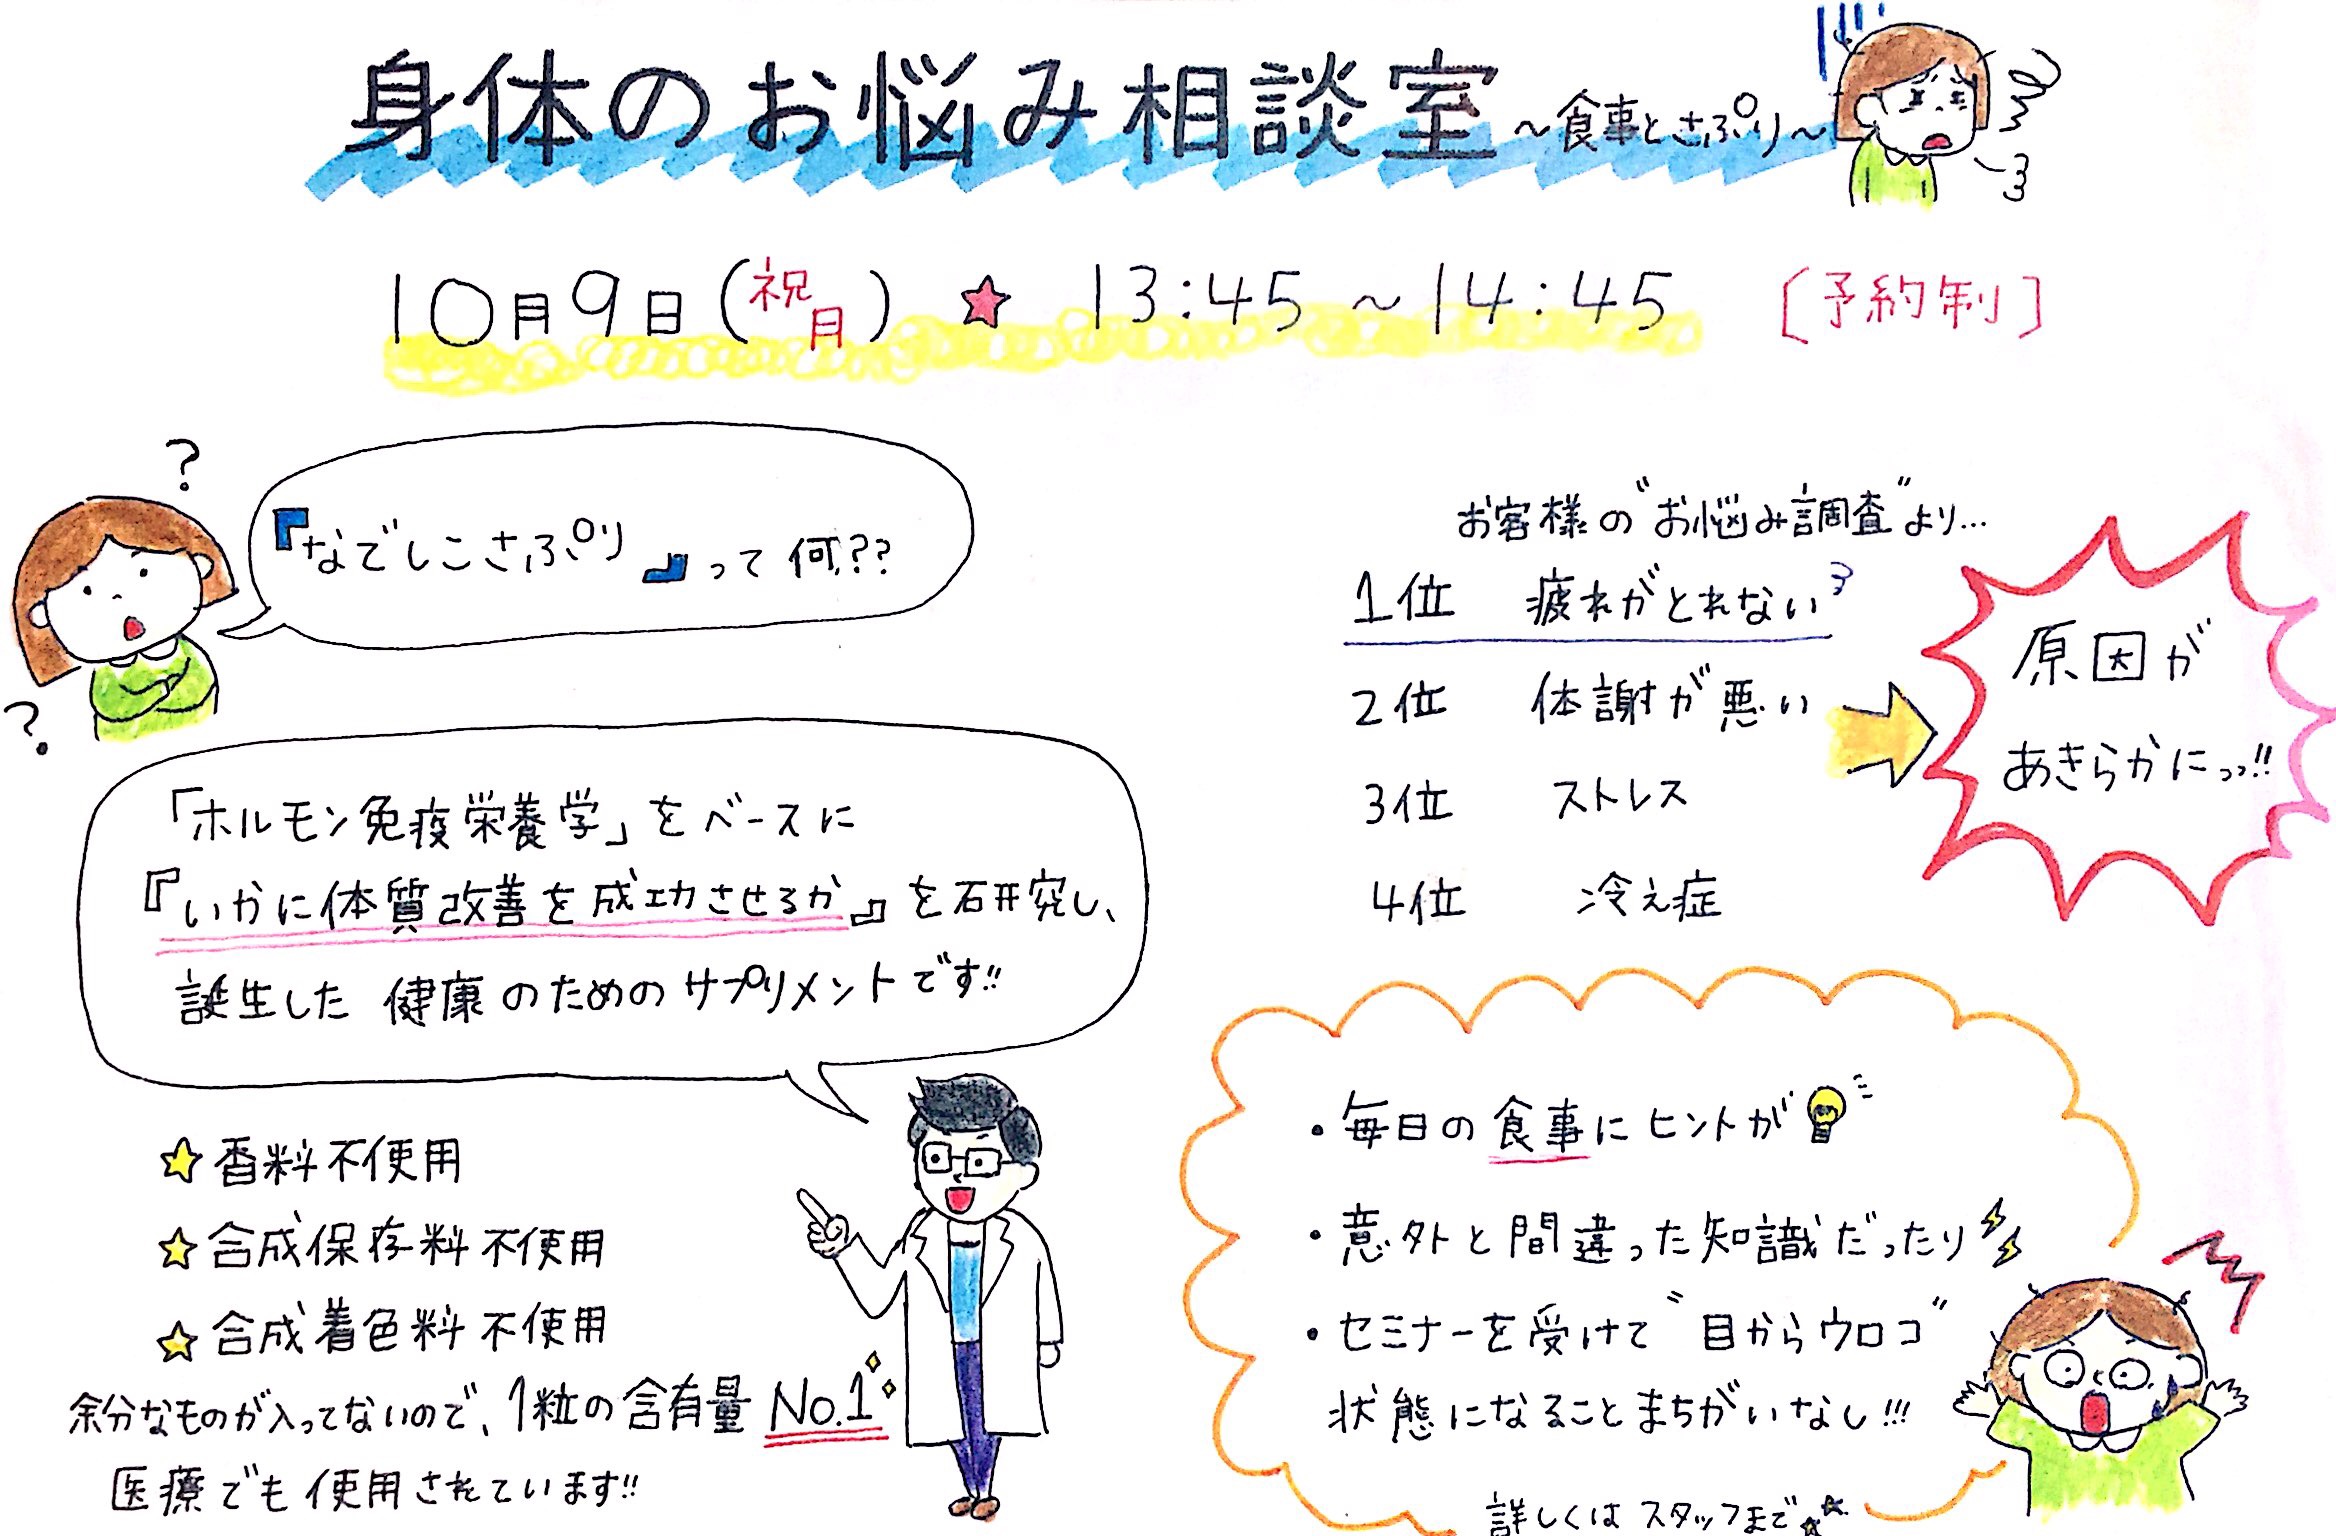 身体のお悩み相談室 ～食事とさぷり～
10月9日(祝月)★13:45～14:45 [予約制]
?
『なでしこさぷり』って何??
?
「ホルモン免疫栄養学」をベースに
『いかに体質改善を成功させるか』を研究し、
誕生した 健康のためのサプリメントです!!
☆香料不使用
☆合成保存料不使用
☆合成着色料不使用
余分なものが入ってないので、1粒の含有量 No.1
医療でも使用されています!!
お客様の"お悩み調査"より...
1位 疲れがとれない
2位 体謝が悪い
3位 ストレス
4位 冷え症
原因が
あきらかにっっ!!
・毎日の食事にヒントが
・意外と間違った知識だったり
・セミナーを受けて"目からウロコ"
状態になることまちがいなし!!!
詳しくはスタッフまで